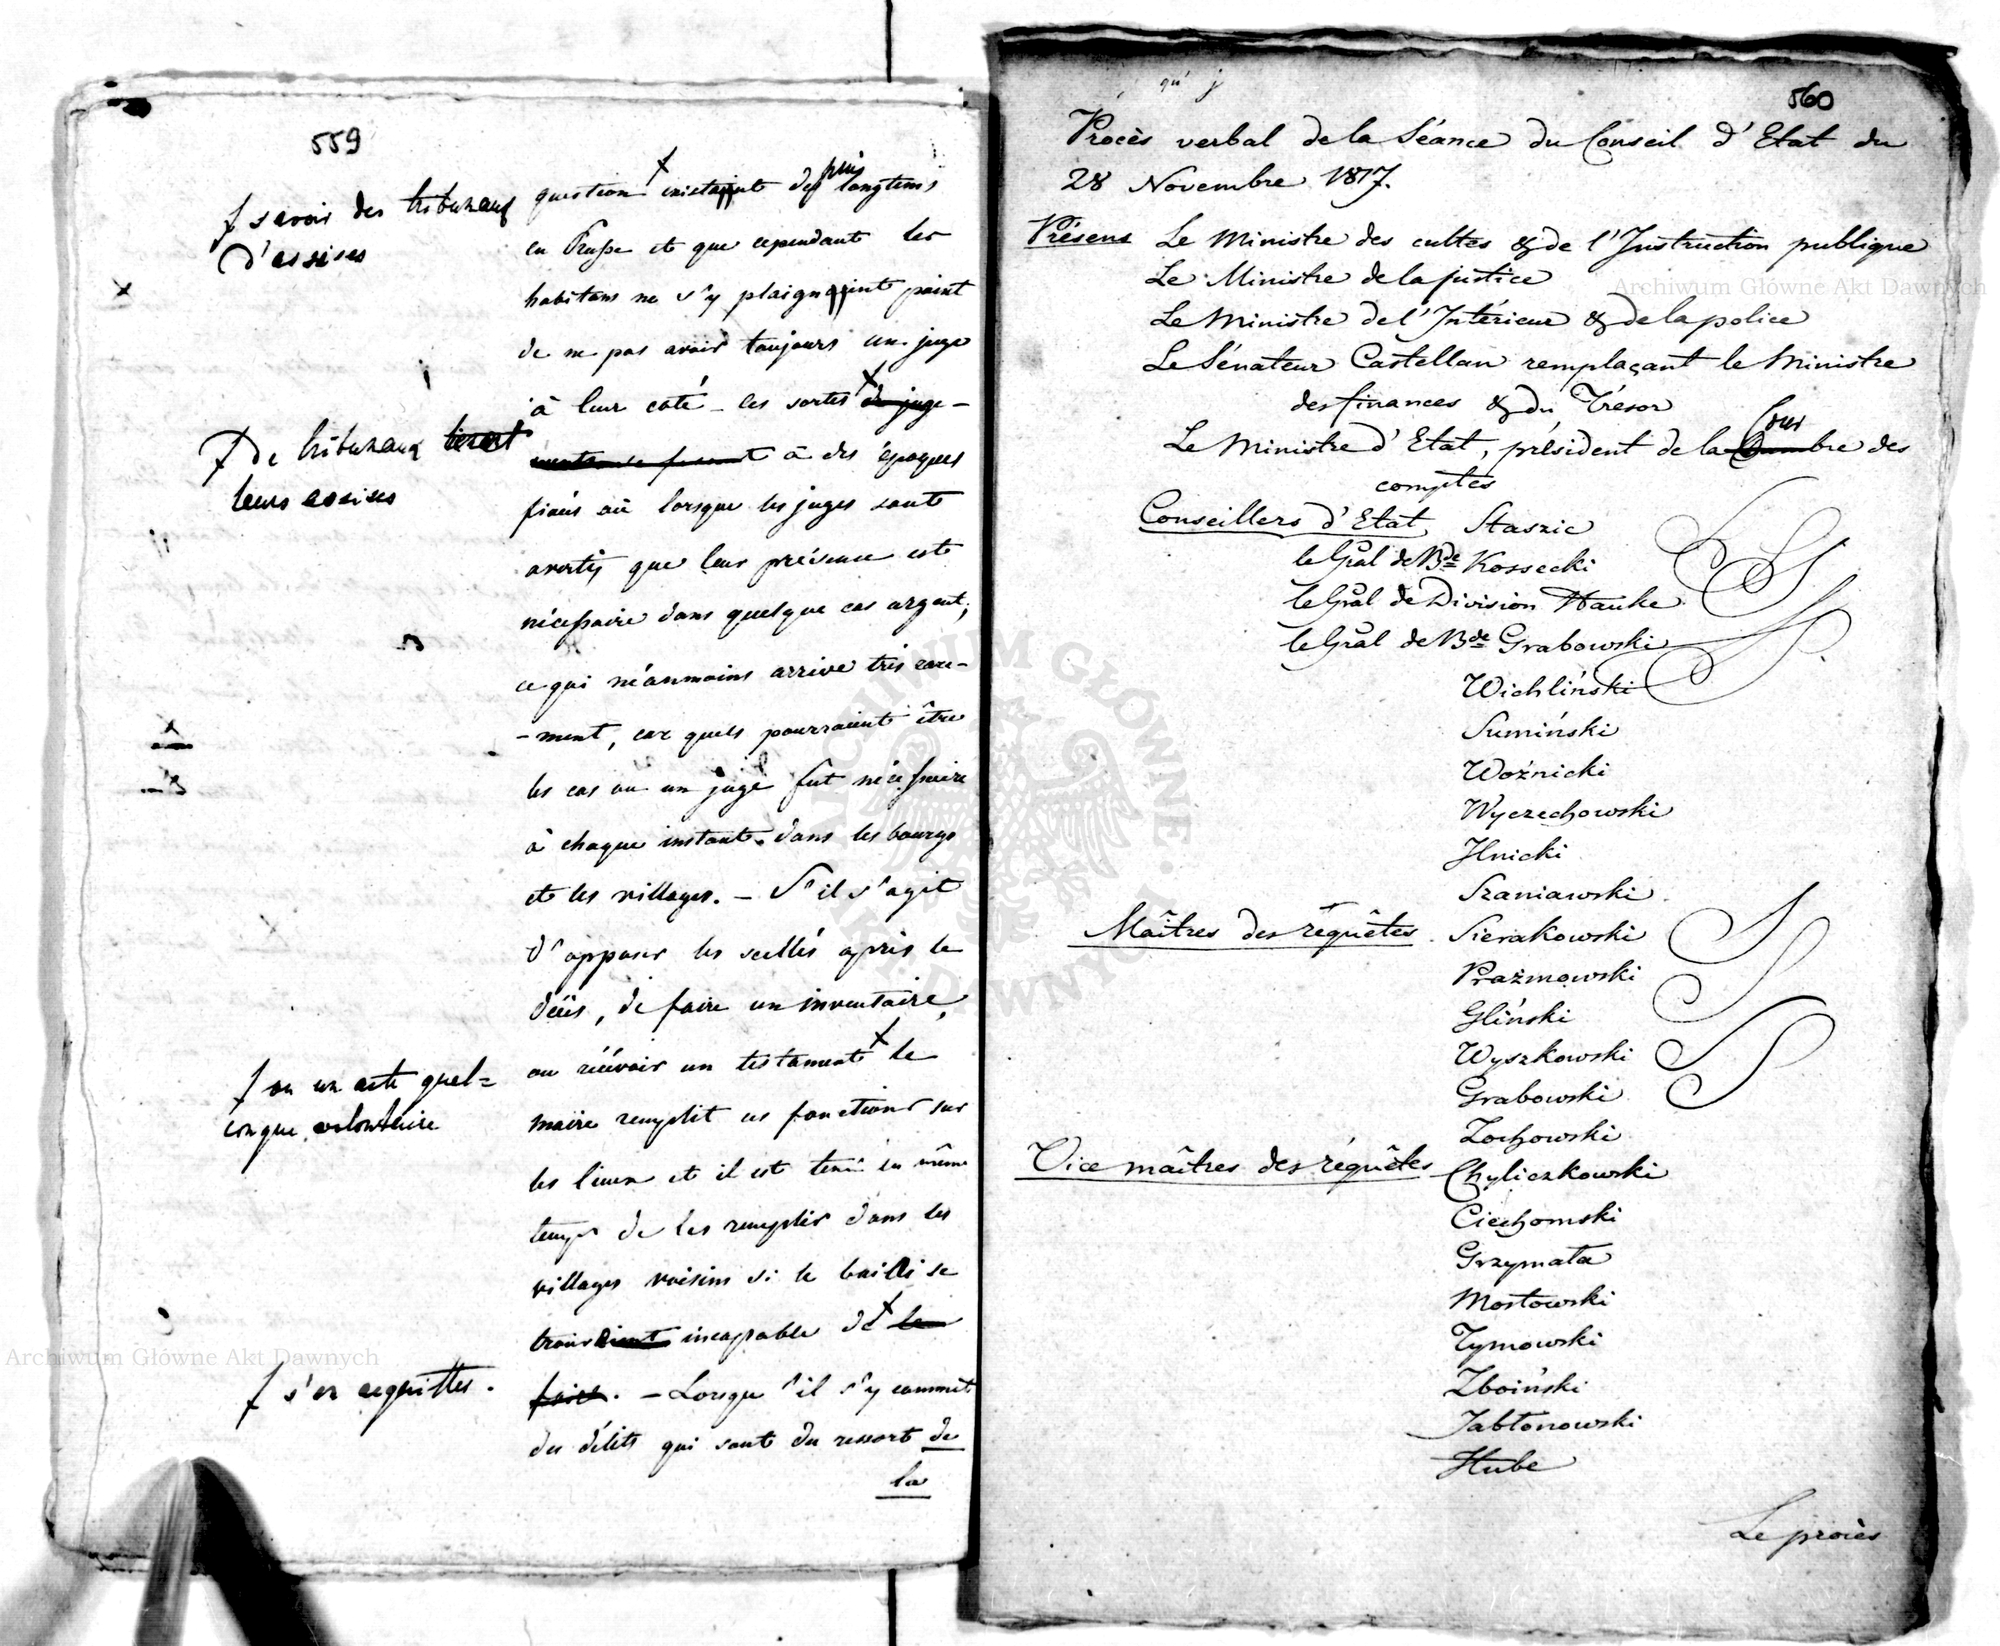 559
question existaient depuis longtems
ƒ savoir des tribunaux
d'assises
en Prusse et que cependant les
habitans ne s'y plaignoient point
de ne pas avoir toujours un juge
à leur coté – les sortes de juge-
ments se font à des époques
ƒ De tribunaux tienent
leurs assises
fixées où lorsque les juges sont
avertis que leur présence est
nécessaire dans quelque cas urgent,
ce qui néanmoins arrive très rare-
-ment, car quels pourraient être
les cas ou un juge fut nécessaire
à chaque instant dans les bourgs
et les villages. – S'il s'agit
d'apposer les scellés après le
décès, de faire un inventaire,
ou récévoir un testament le
ƒ ou un acte quel=
conque volontaire
maire remplit ces fonctions sur
les lieux et il est tenu en même
temps de les remplir dans les
villages voisins si le bailli se
trouvoient incapable de le
faire. – Lorsqu'il s'y commet
ƒ s'en acquitter.
des délits qui sont du ressort de
la
560
qu' j
Procès verbal de la Séance du Conseil d'Etat du
28 Novembre 1817.
Présens Le Ministre des cultes & de l'Instruction publique
Le Ministre de la justice
Le Ministre de l'Intérieur & de la police
Le Sénateur Castellan remplaçant le Ministre
des finances & du Trésor
Le Ministre d'Etat, président de la Chambre Cour des
comptes
Conseillers d'Etat Staszic
le Gral de Bde Kossecki
le Gral de Division Hauke
le Gral de Bde Grabowski
Wichliński
Sumiński
Woźnicki
Wyczechowski
Jlnicki
Szaniawski
Maîtres des réquêtes Sierakowski
Prażmowski
Gliński
Wyszkowski
Grabowski
Zochowski
Vice maîtres des réquêtes Chyliczkowski
Ciechomski
Grzymała
Mostowski
Tymowski
Zboiński
Jabłonowski
Hube
Le procès
Archiwum Główne Akt Dawnych
Archiwum Główne Akt Dawnych
ARCHIWUM GŁÓWNE AKT DAWNYCH